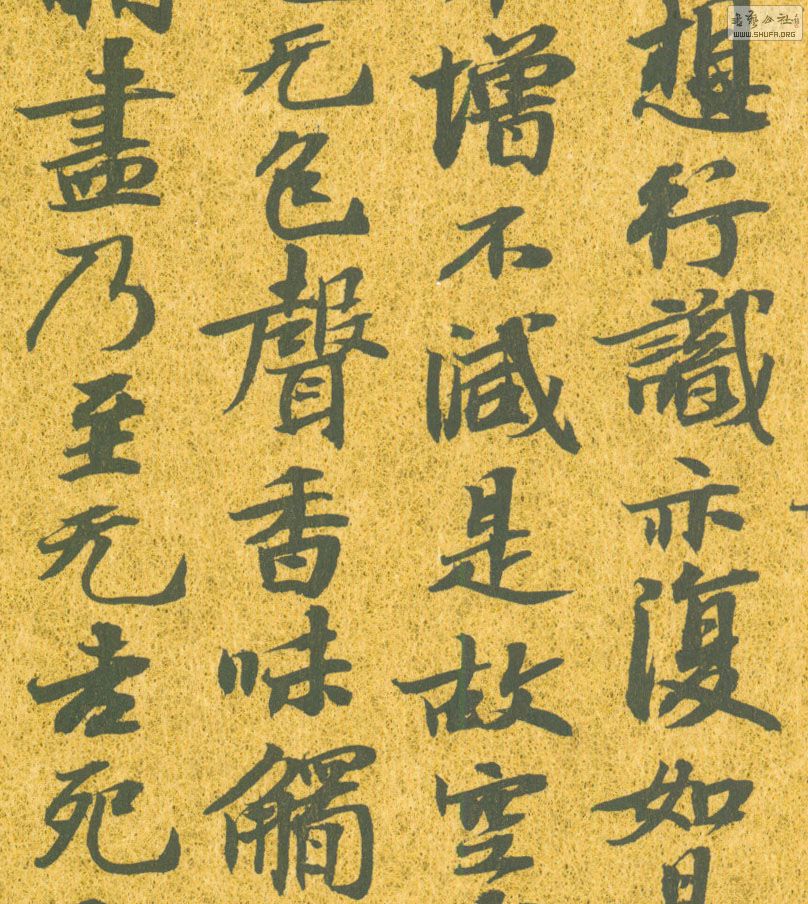 想行識亦復如
增不減是故空
无色聲香味觸
盡乃至无老死
書藝公社
WWW.SHUFA.ORG